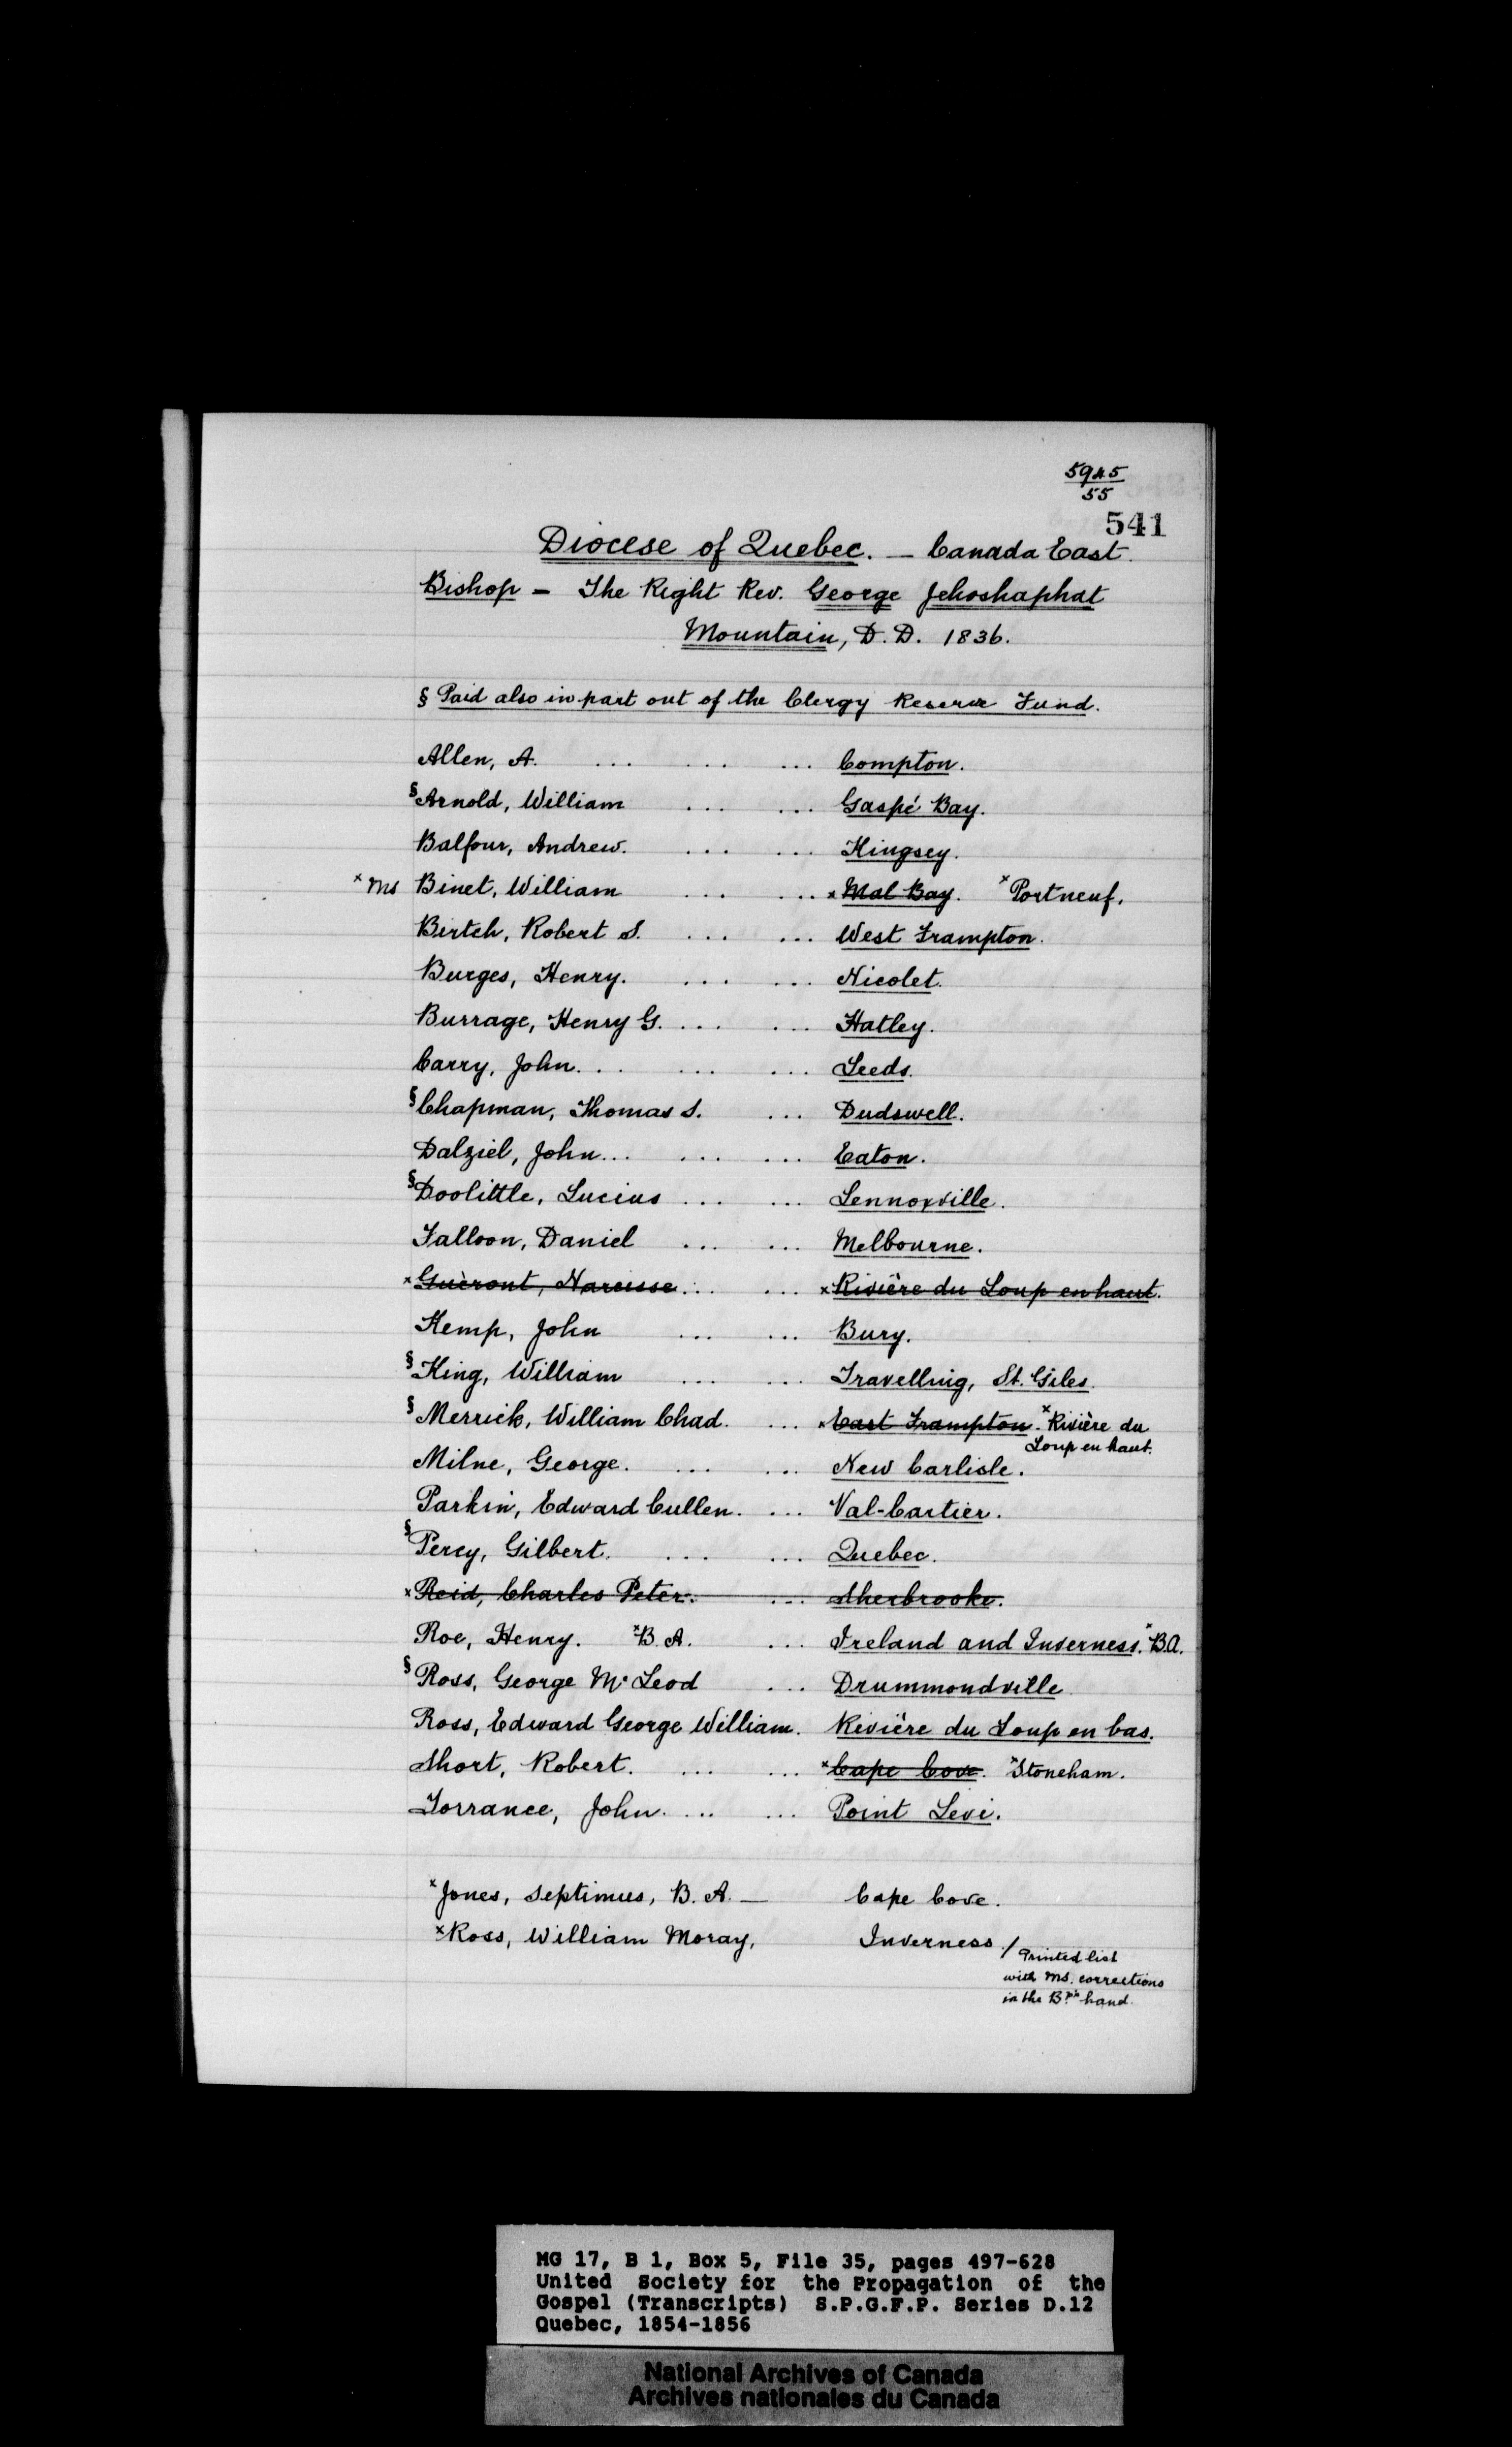 5945
55
541
Diocese of Quebec. — Canada East.
Bishop — The Right Rev. George Jehoshaphat
Mountain, D.D. 1836.
§ Paid also in part out of the Clergy Reserve Fund.
Allen, A. ... ... ... Compton.
§ Arnold, William ... ... Gaspé Bay.
Balfour, Andrew. ... ... Kingsey.
x Ms Binet, William ... ... x Mal Bay. x Portneuf.
Birtch, Robert S. ... ... West Frampton.
Burges, Henry. ... ... Nicolet.
Burrage, Henry G. ... ... Hatley.
Carry, John. .. ... ... Leeds.
§ Chapman, Thomas S. ... Dudswell.
Dalziel, John... ... ... Eaton.
§ Doolittle, Lucius ... ... Lennoxville.
Falloon, Daniel ... ... Melbourne.
x Guèront, Narcisse ... ... x Rivière du Loup en haut.
Kemp, John ... ... Bury.
§ King, William ... ... Travelling, St. Giles.
§ Merrick, William Chad. ... x East Frampton. x Rivière du
Loup en haut.
Milne, George. ... ... New Carlisle.
Parkin, Edward Cullen. ... Val-Cartier.
§ Percy, Gilbert. ... ... Quebec.
x Reid, Charles Peter. ... Sherbrooke.
Roe, Henry. x B.A. ... Ireland and Inverness. x B.A.
§ Ross, George McLeod ... Drummondville
Ross, Edward George William. Rivière du Loup en bas.
Short, Robert. ... ... x Cape Cove. x Stoneham.
Torrance, John. ... ... Point Levi.
x Jones, Septimus, B.A. — Cape Cove.
x Ross, William Moray, Inverness /
Printed list
with Ms. corrections
in the Bp's hand.
MG 17, B 1, Box 5, File 35, pages 497-628
United Society for the Propagation of the
Gospel (Transcripts) S.P.G.F.P. Series D.12
Quebec, 1854-1856
National Archives of Canada
Archives nationales du Canada